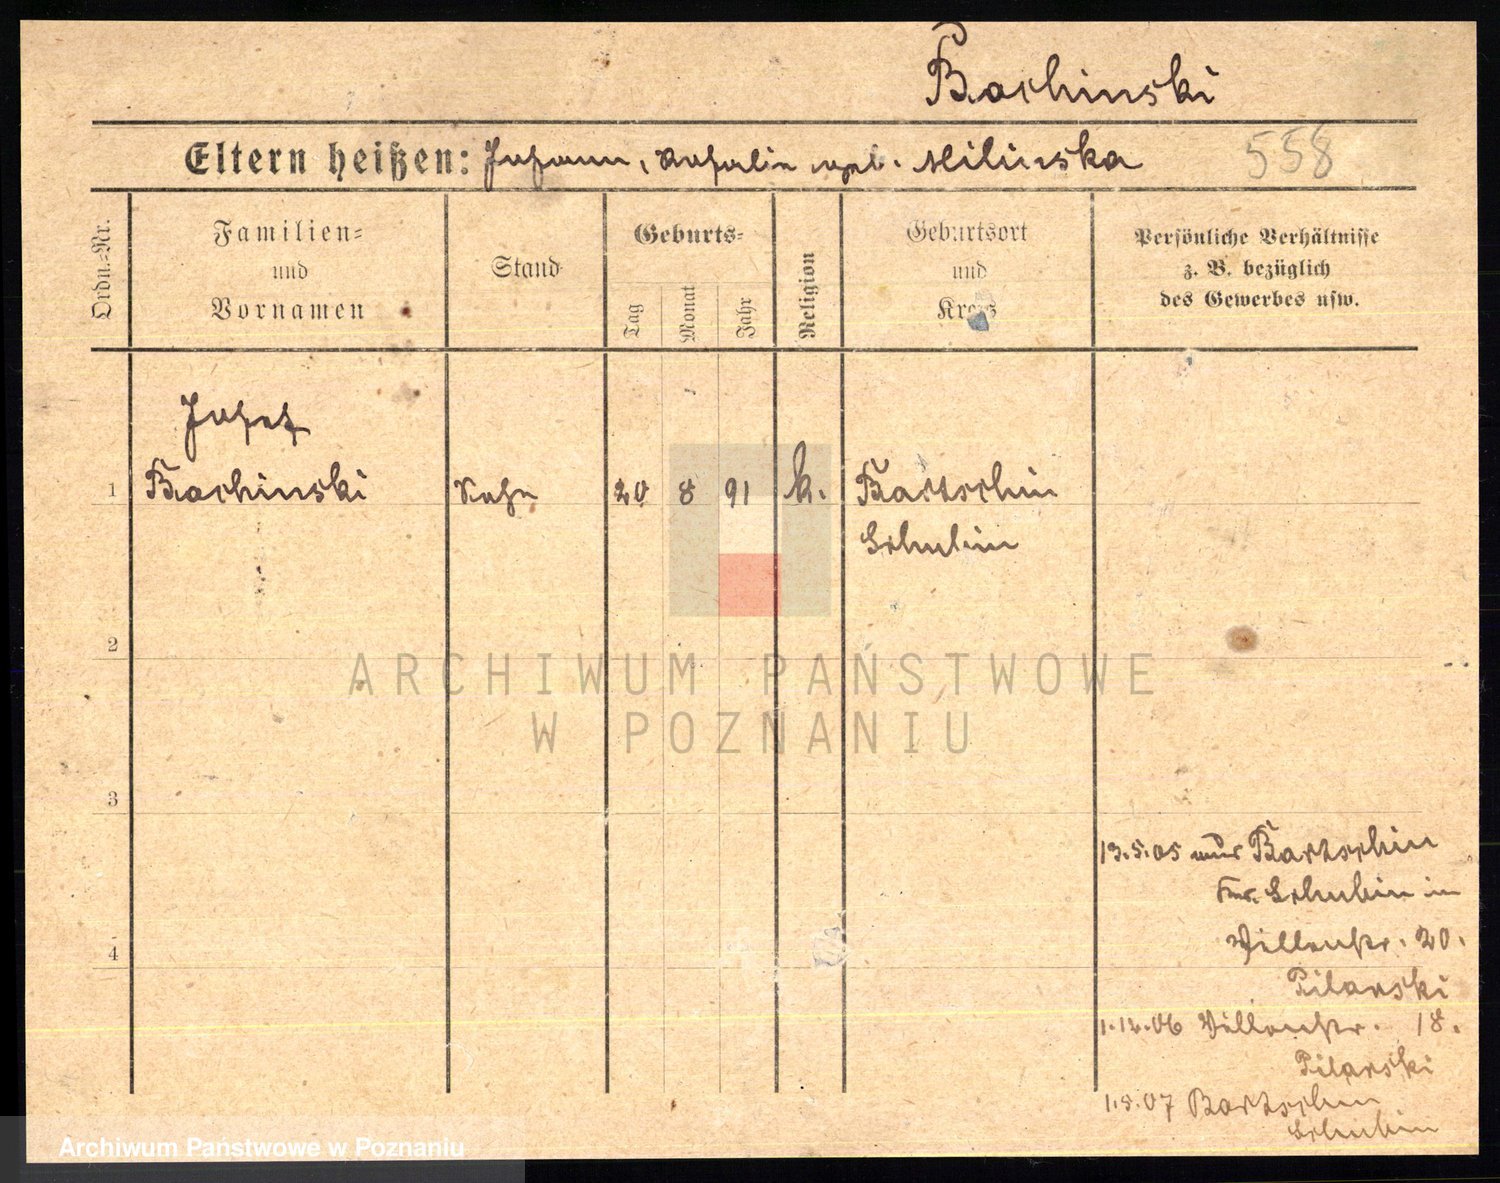 Bachinski
Eltern heißen: Johann, Rosalie geb. Milinska
558
Ordn.-Nr.
Familien-
und
Vornamen
Stand
Geburts-
Tag
Monat
Jahr
Religion
Geburtsort
und
Kreis
Persönliche Verhältnisse
z. B. bezüglich
des Gewerbes usw.
Josef
1 Bachinski Sohn 20 8 91 k. Bartschin
Schubin
2
3
4
13.5.05 aus Bartschin
Schubin in
Villenstr. 20.
Pilarski
1.12.06 Villenstr. 18.
Pilarski
1.5.07 Bartschin
Schubin
ARCHIWUM PAŃSTWOWE
W POZNANIU
Archiwum Państwowe w Poznaniu